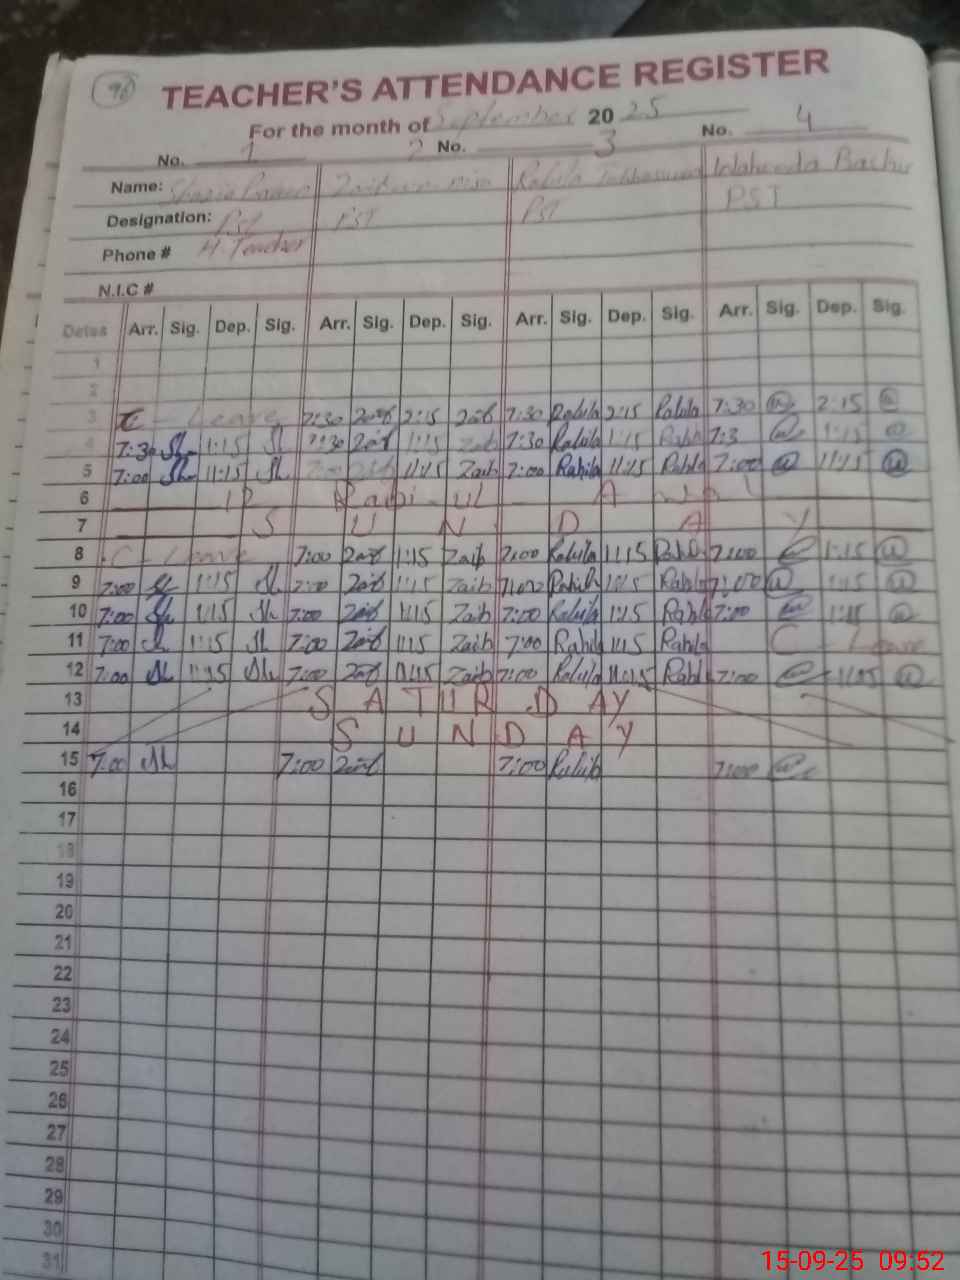 96
TEACHER'S ATTENDANCE REGISTER
For the month of September 2025
No. 1 2 No. 3 No. 4
Name: Rahila Waheeda
Designation: PST PST PST PST
Phone # H. Teacher
N.I.C #
Dates Arr. Sig. Dep. Sig. Arr. Sig. Dep. Sig. Arr. Sig. Dep. Sig. Arr. Sig. Dep. Sig.
1
2
3 C - Leave 7:30 Zaib 2:15 Zaib 7:30 Rahila 2:15 Rahila 7:30 2:15
4 7:30 Sh 1:15 Sh 7:30 Zaib 1:15 Zaib 7:30 Rahila 1:15 Rahila 7:3 1:15
5 7:00 Sh 11:15 Sh 7:00 Zaib 11:15 Zaib 7:00 Rahila 11:15 Rahla 7:00 11:15
6 12 Rabi-ul Awal
7 SUNDAY
8 C - Leave 7:00 Zaib 1:15 Zaib 7:00 Rahila 1:15 Rahila 7:00 1:15
9 7:00 Sh 1:15 Sh 7:00 Zaib 1:15 Zaib 7:00 Rahila 1:15 Rahla 7:00 1:15
10 7:00 Sh 1:15 Sh 7:00 Zaib 1:15 Zaib 7:00 Rahila 1:15 Rahla 7:00 1:15
11 7:00 Sh 1:15 Sh 7:00 Zaib 1:15 Zaib 7:00 Rahila 1:15 Rahla C - Leave
12 7:00 Sh 11:15 Sh 7:00 Zaib 11:15 Zaib 7:00 Rahila 11:15 Rahl 7:00 11:15
13 SATURDAY
14 SUNDAY
15 7:00 Sh 7:00 Zaib 7:00 Rahila 7:00
16
17
18
19
20
21
22
23
24
25
26
27
28
29
30
31
15-09-25 09:52